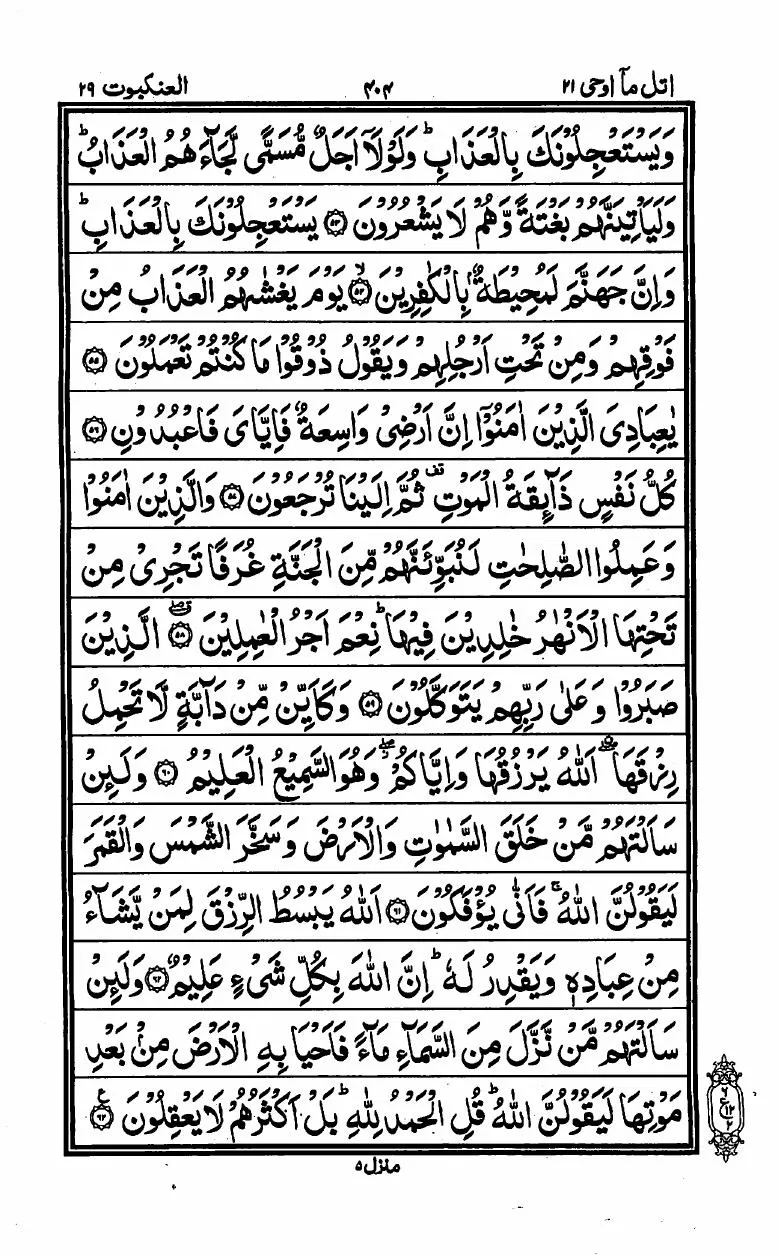 اتل مآ اوحی ۲۱ ۴۰۴ العنکبوت ۲۹
وَيَسْتَعْجِلُوْنَكَ بِالْعَذَابِ ؕ وَلَوْلَاۤ اَجَلٌ مُّسَمًّى لَّجَآءَهُمُ الْعَذَابُ ؕ
وَلَيَاْتِيَنَّهُمْ بَغْتَةً وَّهُمْ لَا يَشْعُرُوْنَ ﴿۵۳﴾ يَسْتَعْجِلُوْنَكَ بِالْعَذَابِ ؕ
وَاِنَّ جَهَنَّمَ لَمُحِيْطَةٌۢ بِالْكٰفِرِيْنَ ۙ﴿۵۴﴾ يَوْمَ يَغْشٰىهُمُ الْعَذَابُ مِنْ
فَوْقِهِمْ وَمِنْ تَحْتِ اَرْجُلِهِمْ وَيَقُوْلُ ذُوْقُوْا مَا كُنْتُمْ تَعْمَلُوْنَ ﴿۵۵﴾
يٰعِبَادِىَ الَّذِيْنَ اٰمَنُوْۤا اِنَّ اَرْضِىْ وَاسِعَةٌ فَاِيَّاىَ فَاعْبُدُوْنِ ﴿۵۶﴾
كُلُّ نَفْسٍ ذَآئِقَةُ الْمَوْتِ ۟ ثُمَّ اِلَيْنَا تُرْجَعُوْنَ ﴿۵۷﴾ وَالَّذِيْنَ اٰمَنُوْا
وَعَمِلُوا الصّٰلِحٰتِ لَنُبَوِّئَنَّهُمْ مِّنَ الْجَنَّةِ غُرَفًا تَجْرِىْ مِنْ
تَحْتِهَا الْاَنْهٰرُ خٰلِدِيْنَ فِيْهَا ؕ نِعْمَ اَجْرُ الْعٰمِلِيْنَ ﴿۵۸﴾ الَّذِيْنَ
صَبَرُوْا وَعَلٰى رَبِّهِمْ يَتَوَكَّلُوْنَ ﴿۵۹﴾ وَكَاَيِّنْ مِّنْ دَآبَّةٍ لَّا تَحْمِلُ
رِزْقَهَا اَللّٰهُ يَرْزُقُهَا وَاِيَّاكُمْ ۖ وَهُوَ السَّمِيْعُ الْعَلِيْمُ ﴿۶۰﴾ وَلَئِنْ
سَاَلْتَهُمْ مَّنْ خَلَقَ السَّمٰوٰتِ وَالْاَرْضَ وَسَخَّرَ الشَّمْسَ وَالْقَمَرَ
لَيَقُوْلُنَّ اللّٰهُ ۚ فَاَنّٰى يُؤْفَكُوْنَ ﴿۶۱﴾ اَللّٰهُ يَبْسُطُ الرِّزْقَ لِمَنْ يَّشَآءُ
مِنْ عِبَادِهٖ وَيَقْدِرُ لَهٗ ؕ اِنَّ اللّٰهَ بِكُلِّ شَىْءٍ عَلِيْمٌ ﴿۶۲﴾ وَلَئِنْ
سَاَلْتَهُمْ مَّنْ نَّزَّلَ مِنَ السَّمَآءِ مَآءً فَاَحْيَا بِهِ الْاَرْضَ مِنْۢ بَعْدِ
مَوْتِهَا لَيَقُوْلُنَّ اللّٰهُ ؕ قُلِ الْحَمْدُ لِلّٰهِ ؕ بَلْ اَكْثَرُهُمْ لَا يَعْقِلُوْنَ ﴿۶۳﴾ ع
۶
ع ۱۲
۲
منزل ۵